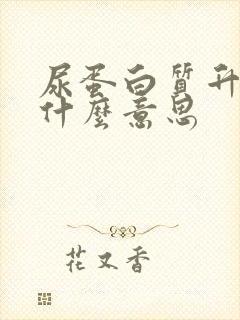 尿蛋白質升
什麼意思
花又香